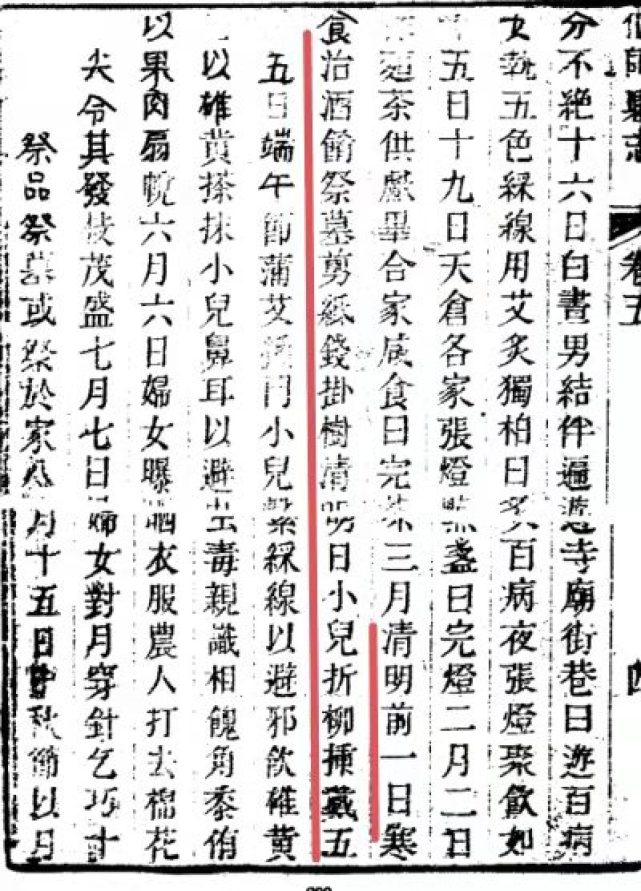 偃師縣志
卷五
四
分不絶十六日白晝男結伴遍遊寺廟街巷曰遊百病
女執五色綵線用艾炙獨柏曰炙百病夜張燈聚飲如
五日十九日天倉各家張燈點盞曰完燈二月二日
麵茶供獻畢合家咸食曰完茶三月清明前一日寒
食治酒餚祭墓剪紙錢掛樹清明日小兒折柳揷戴五
五日端午節蒲艾揷門小兒繫綵線以避邪飲雄黄
以雄黄搽抹小兒鼻耳以避虫毒親識相餽角黍侑
以果肉扇帨六月六日婦女曝晒衣服農人打去棉花
尖令其發枝茂盛七月七日婦女對月穿針乞巧十
祭品祭墓或祭於家八月十五日中秋節以月